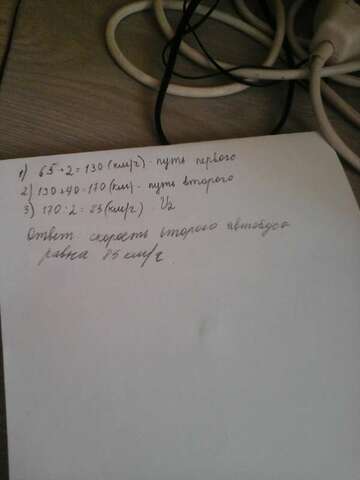 1) 65 · 2 = 130 (км/ч) - путь первого
2) 130 + 40 = 170 (км) - путь второго
3) 170 : 2 = 85 (км/ч) V2
Ответ: скорость второго автобуса
равна 85 км/ч